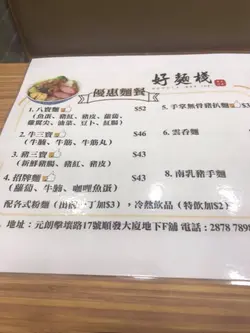 好麵棧
NOODLE BAR INN.
優惠麵餐
1. 八寶麵 $52
(魚蛋、豬紅、豬皮、蘿蔔
雞翼尖、油菜、豆卜、紅腸)
2. 牛三寶 $46
(牛腩、牛筋、牛筋丸)
3. 豬三寶 $43
(新鮮豬腸、豬紅、豬皮)
4. 招牌麵 $43
(蘿蔔、牛腩、咖哩魚蛋)
5. 手掌無骨豬扒麵
6. 雲吞麵
8. 南乳豬手麵
配各式粉麵(出前一丁加$3),冷熱飲品(特飲加$2)
地址:元朗擊壤路17號順發大廈地下F舖 電話:2878 789